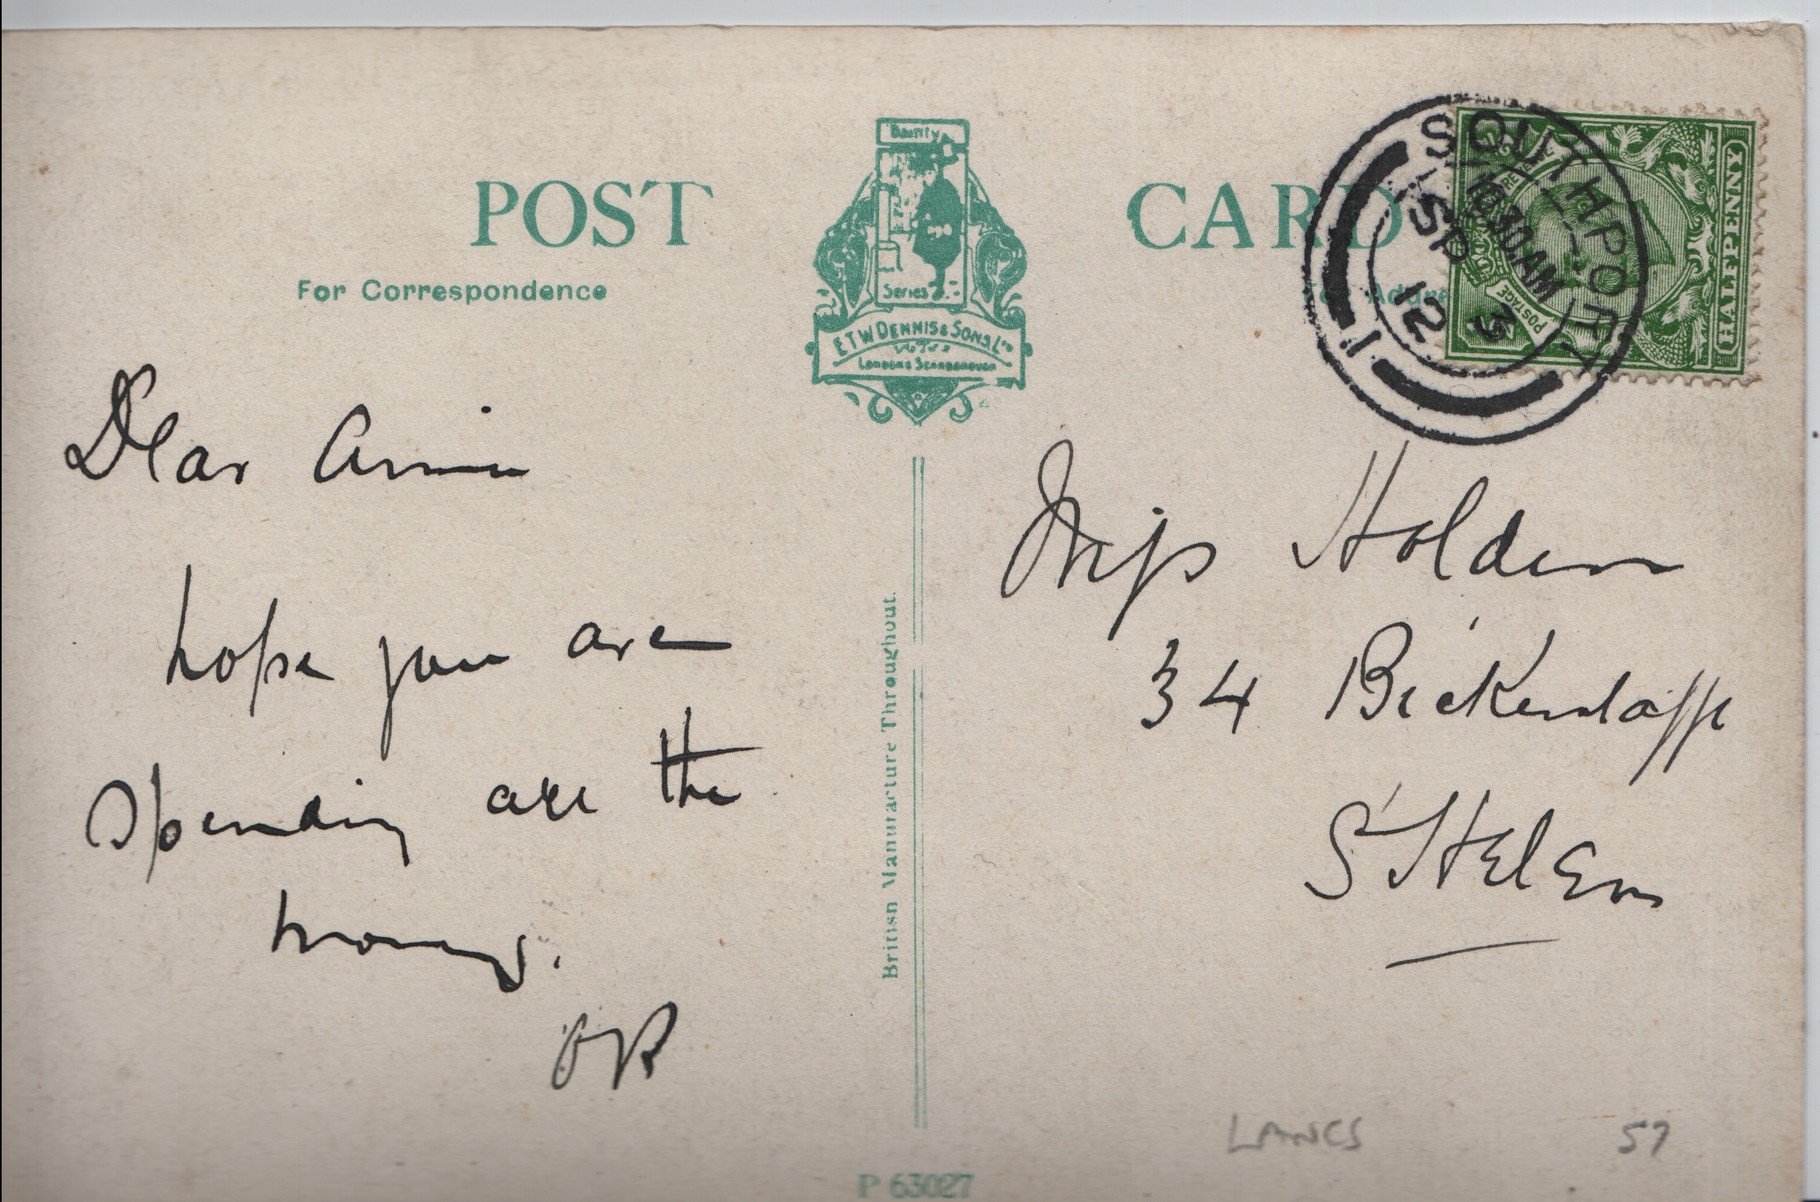 POST CARD
For Correspondence
Dainty
Series
E T W DENNIS & SONS, LTD
LONDON & SCARBOROUGH
SOUTHPORT
10 30 AM
SP 3
12
1
POSTAGE
HALFPENNY
Dear Annie
hope you are
spending all the
money.
OR
British Manufacture Throughout.
Miss Holden
34 Bickerstaffe
St Helens
LANCS
57
P 63027